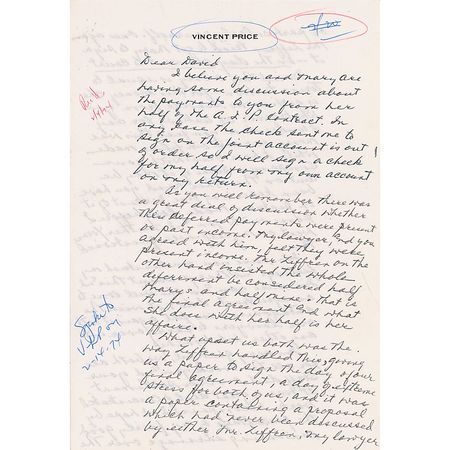 VINCENT PRICE
Dear David
I believe you and Mary are
having some discussion about
the payments to you from her
half of the A.I.P. Contract. In
any case the check sent me to
sign on the joint account is out
of order so I will sign a check
for my half from my own account
on my return.
As you will remember there was
a great deal of discussion whether
this deferred payments were present
or past income. My lawyer, and you
agreed with him, felt they were
present income. Mr. Ziffren on the
other hand insisted the whole
deferrment be considered half
Mary's and half mine: That is
the final agreement and what
she does with her half is her
affaire.
What upset us both was the
way Ziffren handled this, giving
us a paper to sign the day of our
final agreement, a day of extreme
stress for both of us, and it was
a paper containing a proposal
which had never been discussed
by either Mr. Ziffren, my lawyer
Spoke to
V.P. on
2-14-74